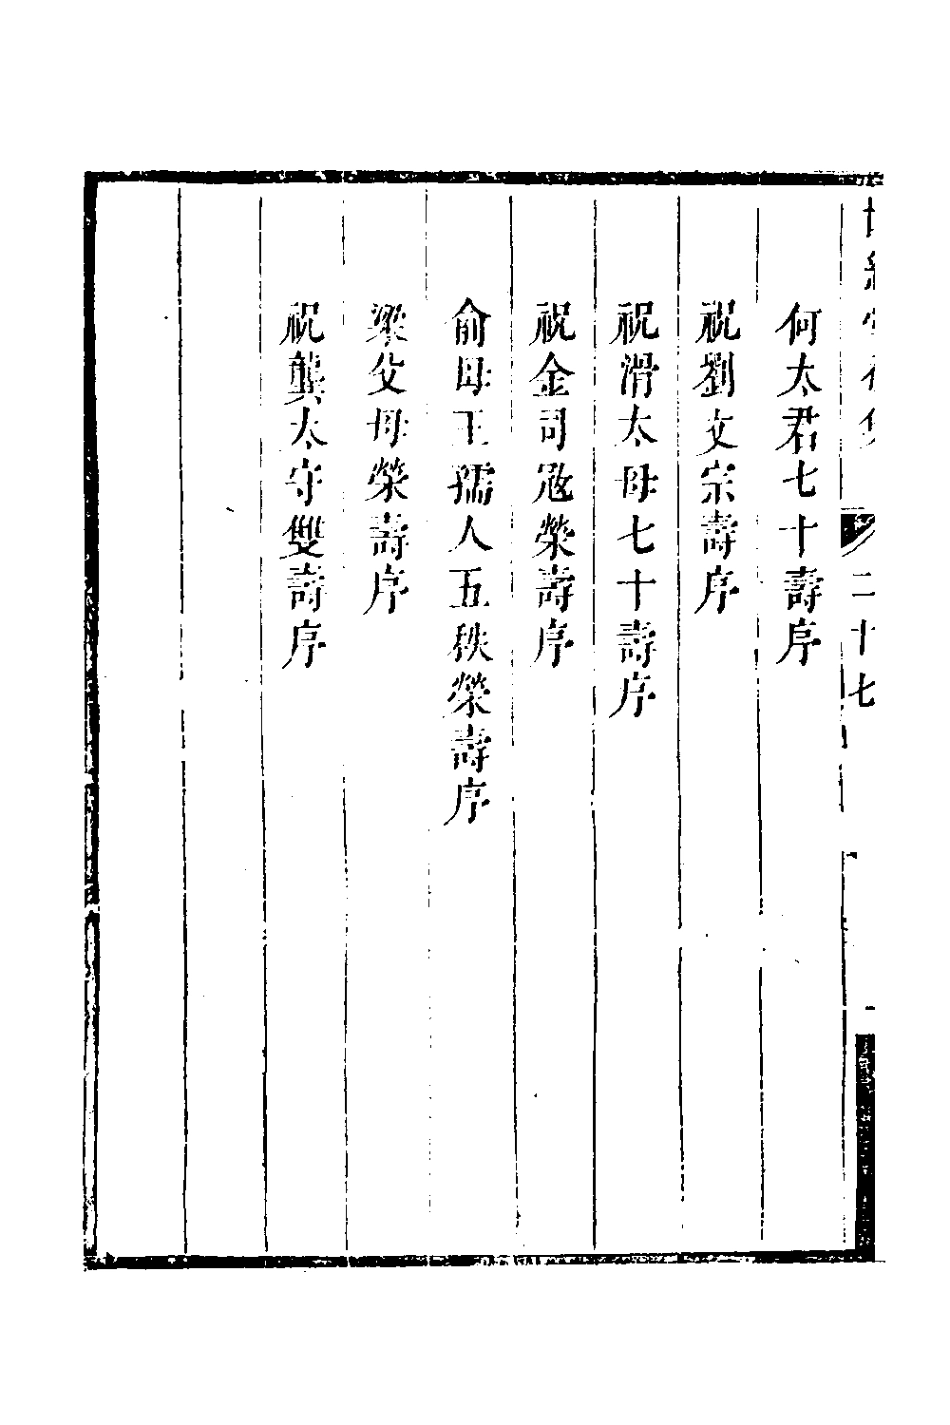 二十七
何太君七十壽序
祝劉文宗壽序
祝滑太母七十壽序
祝金司寇榮壽序
俞母王孺人五秩榮壽序
梁父母榮壽序
祝龔太守雙壽序